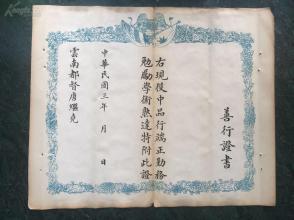 善行證書
右現後中品行端正勤務
勉勵學術熟達特附此證
中華民國三年　月　日
雲南都督唐繼堯